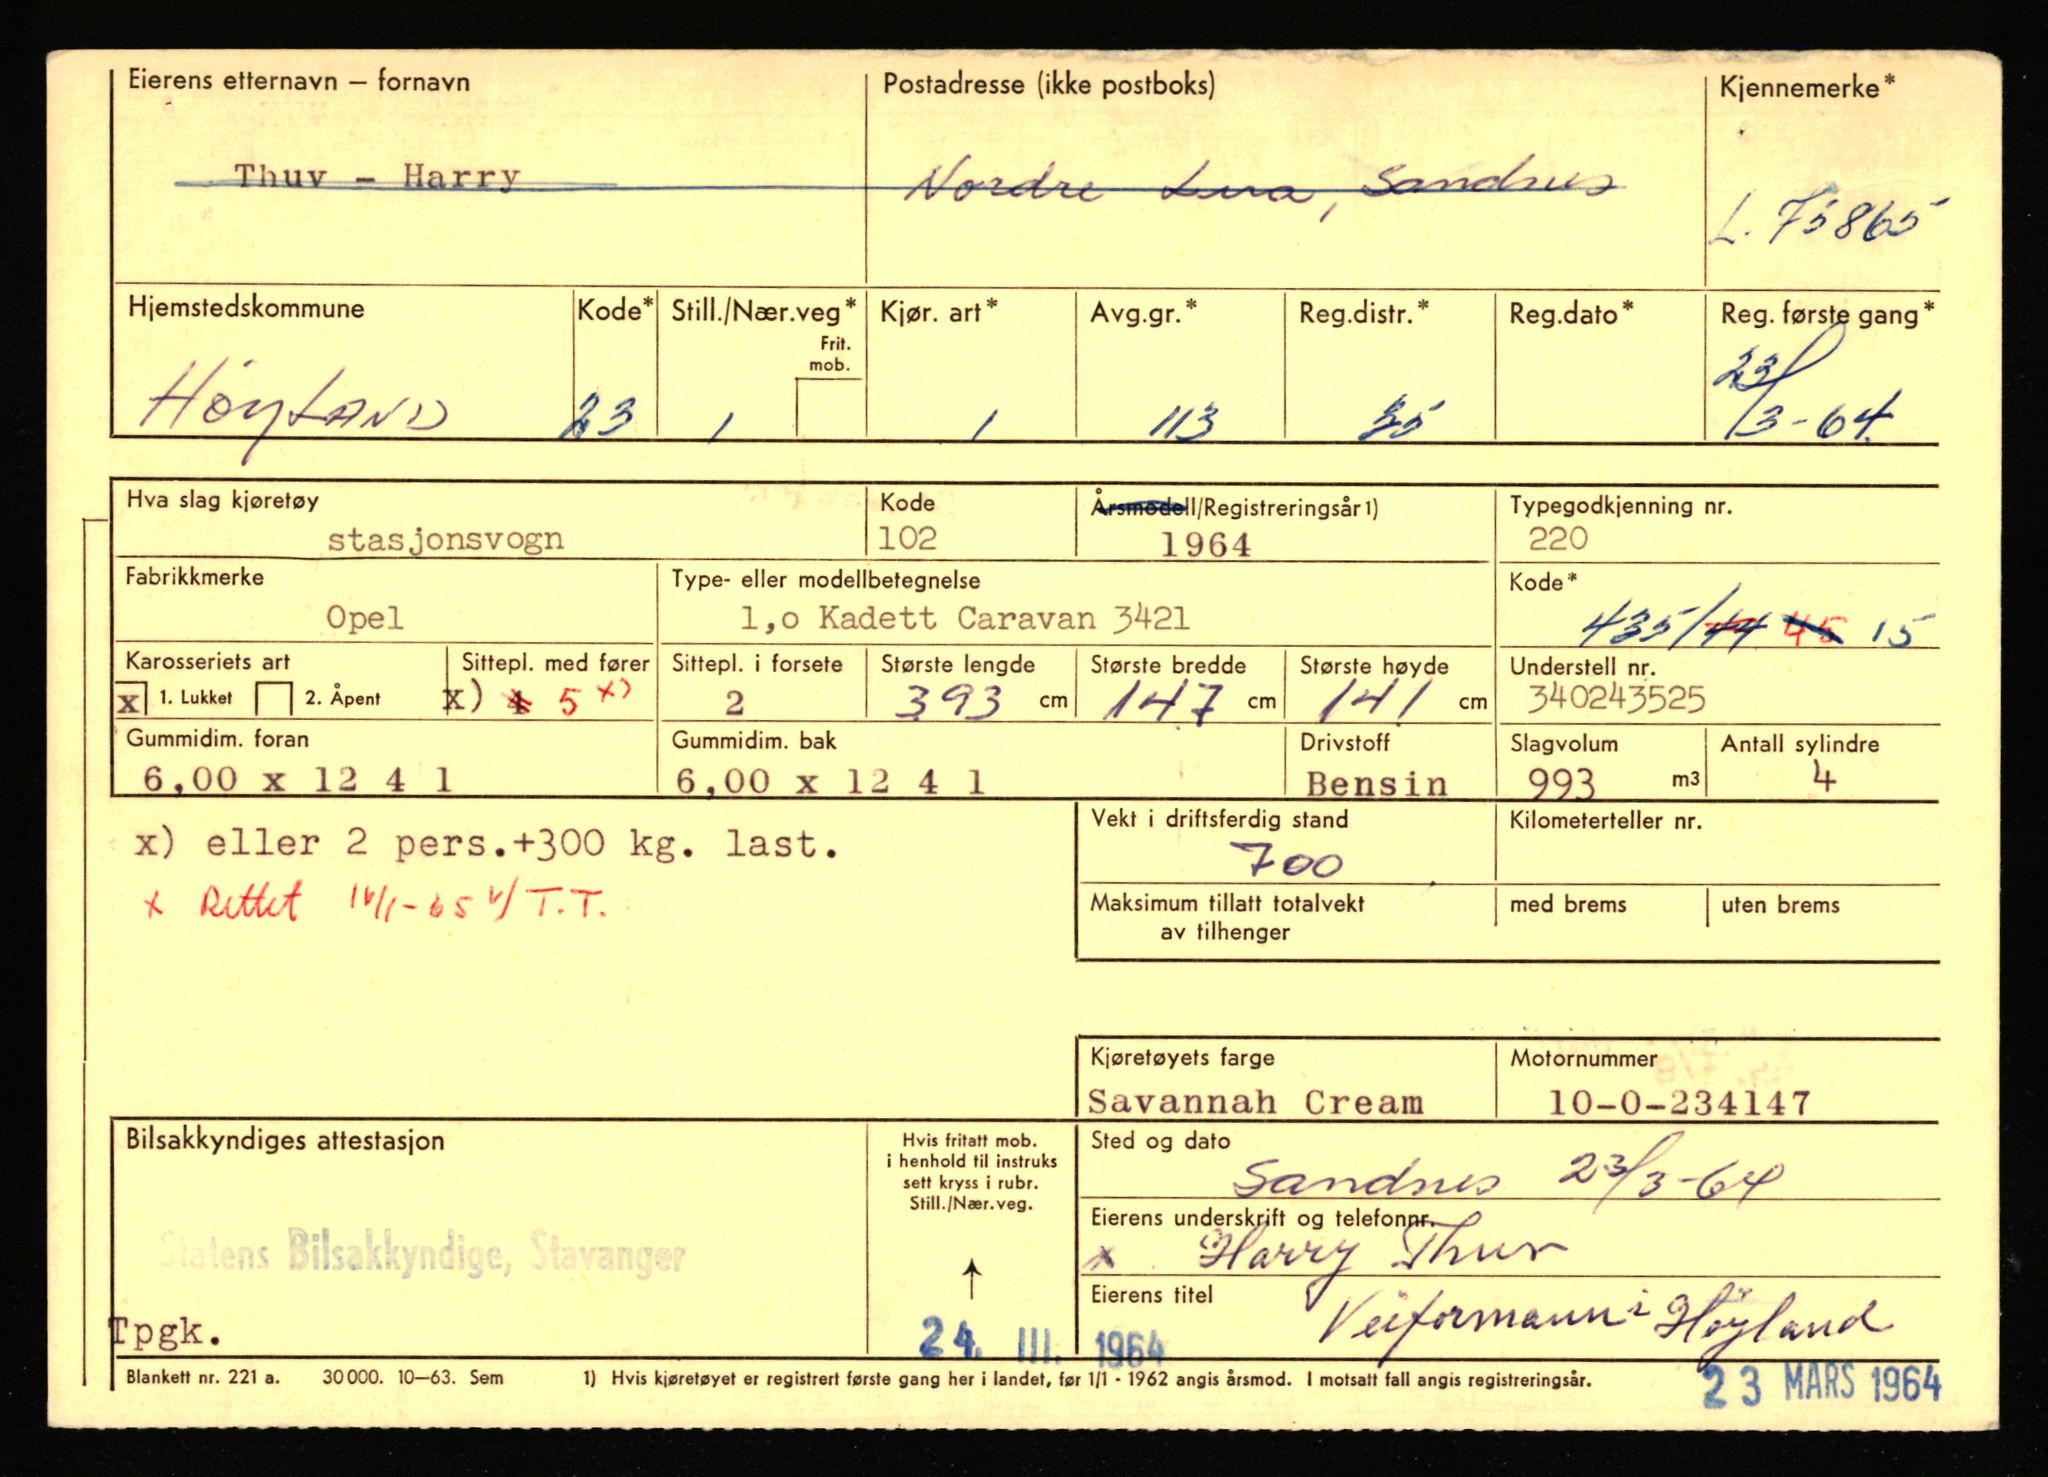 Eierens etternavn — fornavn Postadresse (ikke postboks) Kjennemerke*
Thuv - Harry Nordre Lura, Sandnes L. 75865
Hjemstedskommune Kode* Still./Nær.veg* Kjør. art* Avg.gr.* Reg.distr.* Reg.dato* Reg. første gang*
Frit.
mob.
HØYLAND 23 1 1 113 35 23/3-64.
Hva slag kjøretøy Kode Årsmodell/Registreringsår 1) Typegodkjenning nr.
stasjonsvogn 102 1964 220
Fabrikkmerke Type- eller modellbetegnelse Kode*
Opel 1,o Kadett Caravan 3421 435/44 45 15
Karosseriets art Sittepl. med fører Sittepl. i forsete Største lengde Største bredde Største høyde Understell nr.
x 1. Lukket 2. Åpent x) 4 5 x) 2 393 cm 147 cm 141 cm 340243525
Gummidim. foran Gummidim. bak Drivstoff Slagvolum Antall sylindre
6,00 x 12 4 1 6,00 x 12 4 1 Bensin 993 m3 4
x) eller 2 pers.+300 kg. last. Vekt i driftsferdig stand Kilometerteller nr.
700
x Rettet 16/1-65 v/ T.T. Maksimum tillatt totalvekt med brems uten brems
av tilhenger
Kjøretøyets farge Motornummer
Savannah Cream 10-0-234147
Bilsakkyndiges attestasjon Hvis fritatt mob. Sted og dato
i henhold til instruks
sett kryss i rubr. Sandnes 23/3-64
Still./Nær.veg.
Eierens underskrift og telefonnr.
Statens Bilsakkyndige, Stavanger x Harry Thuv
Eierens titel
Tpgk. 24. III. 1964 Veiformann i Høyland
Blankett nr. 221 a. 30000. 10—63. Sem 1) Hvis kjøretøyet er registrert første gang her i landet, før 1/1 - 1962 angis årsmod. I motsatt fall angis registreringsår. 23 MARS 1964